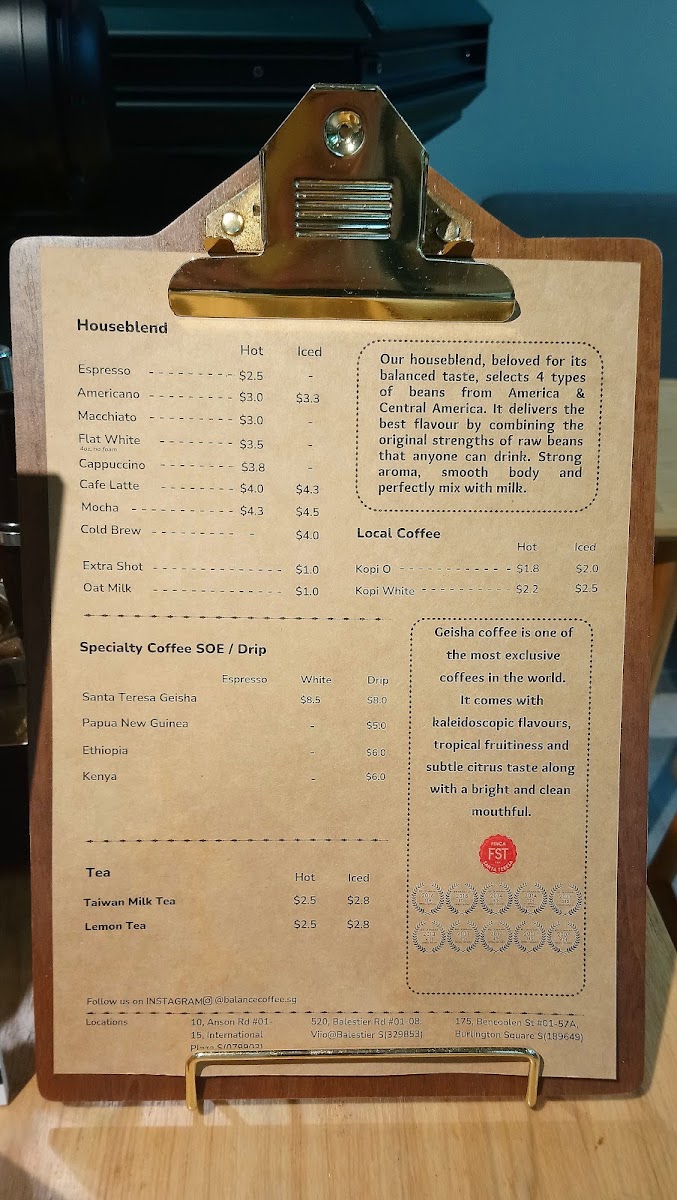 Houseblend
Hot Iced
Espresso - - - - - - - - - $2.5 -
Americano - - - - - - - - $3.0 $3.3
Macchiato - - - - - - - - $3.0 -
Flat White - - - - - - - - $3.5 -
4oz, no foam
Cappuccino - - - - - - - - $3.8 -
Cafe Latte - - - - - - - - $4.0 $4.3
Mocha - - - - - - - - - - - $4.3 $4.5
Cold Brew - - - - - - - - - - $4.0
Extra Shot - - - - - - - - - - - - - - $1.0
Oat Milk - - - - - - - - - - - - - - - $1.0
Our houseblend, beloved for its
balanced taste, selects 4 types
of beans from America &
Central America. It delivers the
best flavour by combining the
original strengths of raw beans
that anyone can drink. Strong
aroma, smooth body and
perfectly mix with milk.
Local Coffee
Hot Iced
Kopi O - - - - - - - - - - - - $1.8 $2.0
Kopi White - - - - - - - - - - $2.2 $2.5
Specialty Coffee SOE / Drip
Espresso White Drip
Santa Teresa Geisha $8.5 $8.0
Papua New Guinea - $5.0
Ethiopia - $6.0
Kenya - $6.0
Geisha coffee is one of
the most exclusive
coffees in the world.
It comes with
kaleidoscopic flavours,
tropical fruitiness and
subtle citrus taste along
with a bright and clean
mouthful.
FINCA
FST
SANTA TERESA
Tea
Hot Iced
Taiwan Milk Tea $2.5 $2.8
Lemon Tea $2.5 $2.8
Follow us on INSTAGRAM @balancecoffee.sg
Locations
10, Anson Rd #01-
15, International
Plaza S(079903)
520, Balestier Rd #01-08
Viio@Balestier S(329853)
175, Bencoolen St #01-57A,
Burlington Square S(189649)